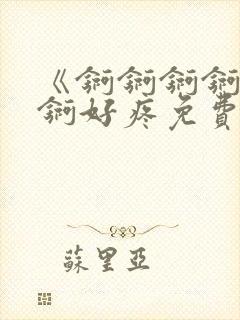 《锕锕锕锕
锕好疼免費
蘇里亞